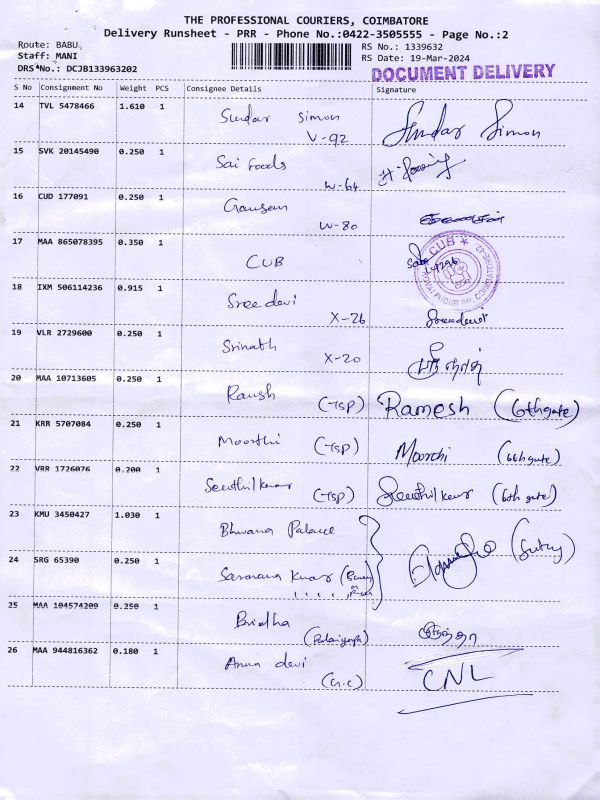 THE PROFESSIONAL COURIERS, COIMBATORE
Delivery Runsheet - PRR - Phone No.:0422-3505555 - Page No.:2
Route: BABU
Staff: MANI
DRS No.: DCJB133963202
RS No.: 1339632
RS Date: 19-Mar-2024
DOCUMENT DELIVERY
S No Consignment No Weight PCS Consignee Details Signature
14 TVL 5478466 1.610 1 Sundar Simon Sundar Simon
V-92
15 SVK 20145490 0.250 1 Sai Foods
W-64
16 CUD 177091 0.250 1
W-80
17 MAA 865078395 0.350 1 CUB
CUB
18 IXM 506114236 0.915 1 Sreedevi
X-26 Sreedevi
19 VLR 2729600 0.250 1 Srinath
X-20 ஸ்ரீநாத்
20 MAA 10713605 0.250 1 (TSP) Ramesh (6thgate)
21 KRR 5707084 0.250 1 Moorthi (TSP) Moorthi (6thgate)
22 VRR 1726076 0.200 1 Senthilkumar (TSP) Senthilkumar (6th gate)
23 KMU 3450427 1.030 1 Bhuvana Palace
24 SRG 65390 0.250 1 Saravana Kumar
25 MAA 104574209 0.250 1 Bridha
26 MAA 944816362 0.180 1 Anna devi
(G.C) CNL